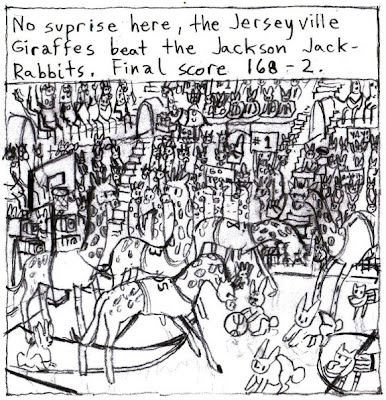 No suprise here, the Jerseyville
Giraffes beat the Jackson Jack-
Rabbits. Final score 168 - 2.
#1
Go
Team